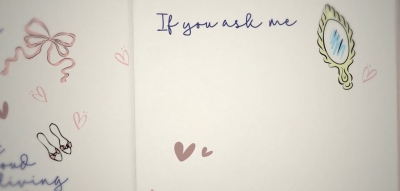 If you ask me
living